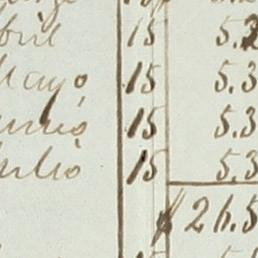 bril 15 5.3
Mayo 15 5.3
unio 15 5.3
Julio 15 5.3
$26.5